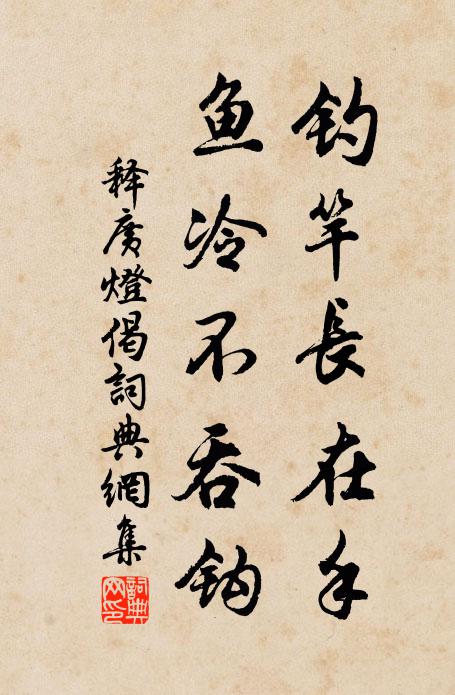 钓竿長在手
鱼冷不吞钩
释廣燈偈詞典網集
詞典网印